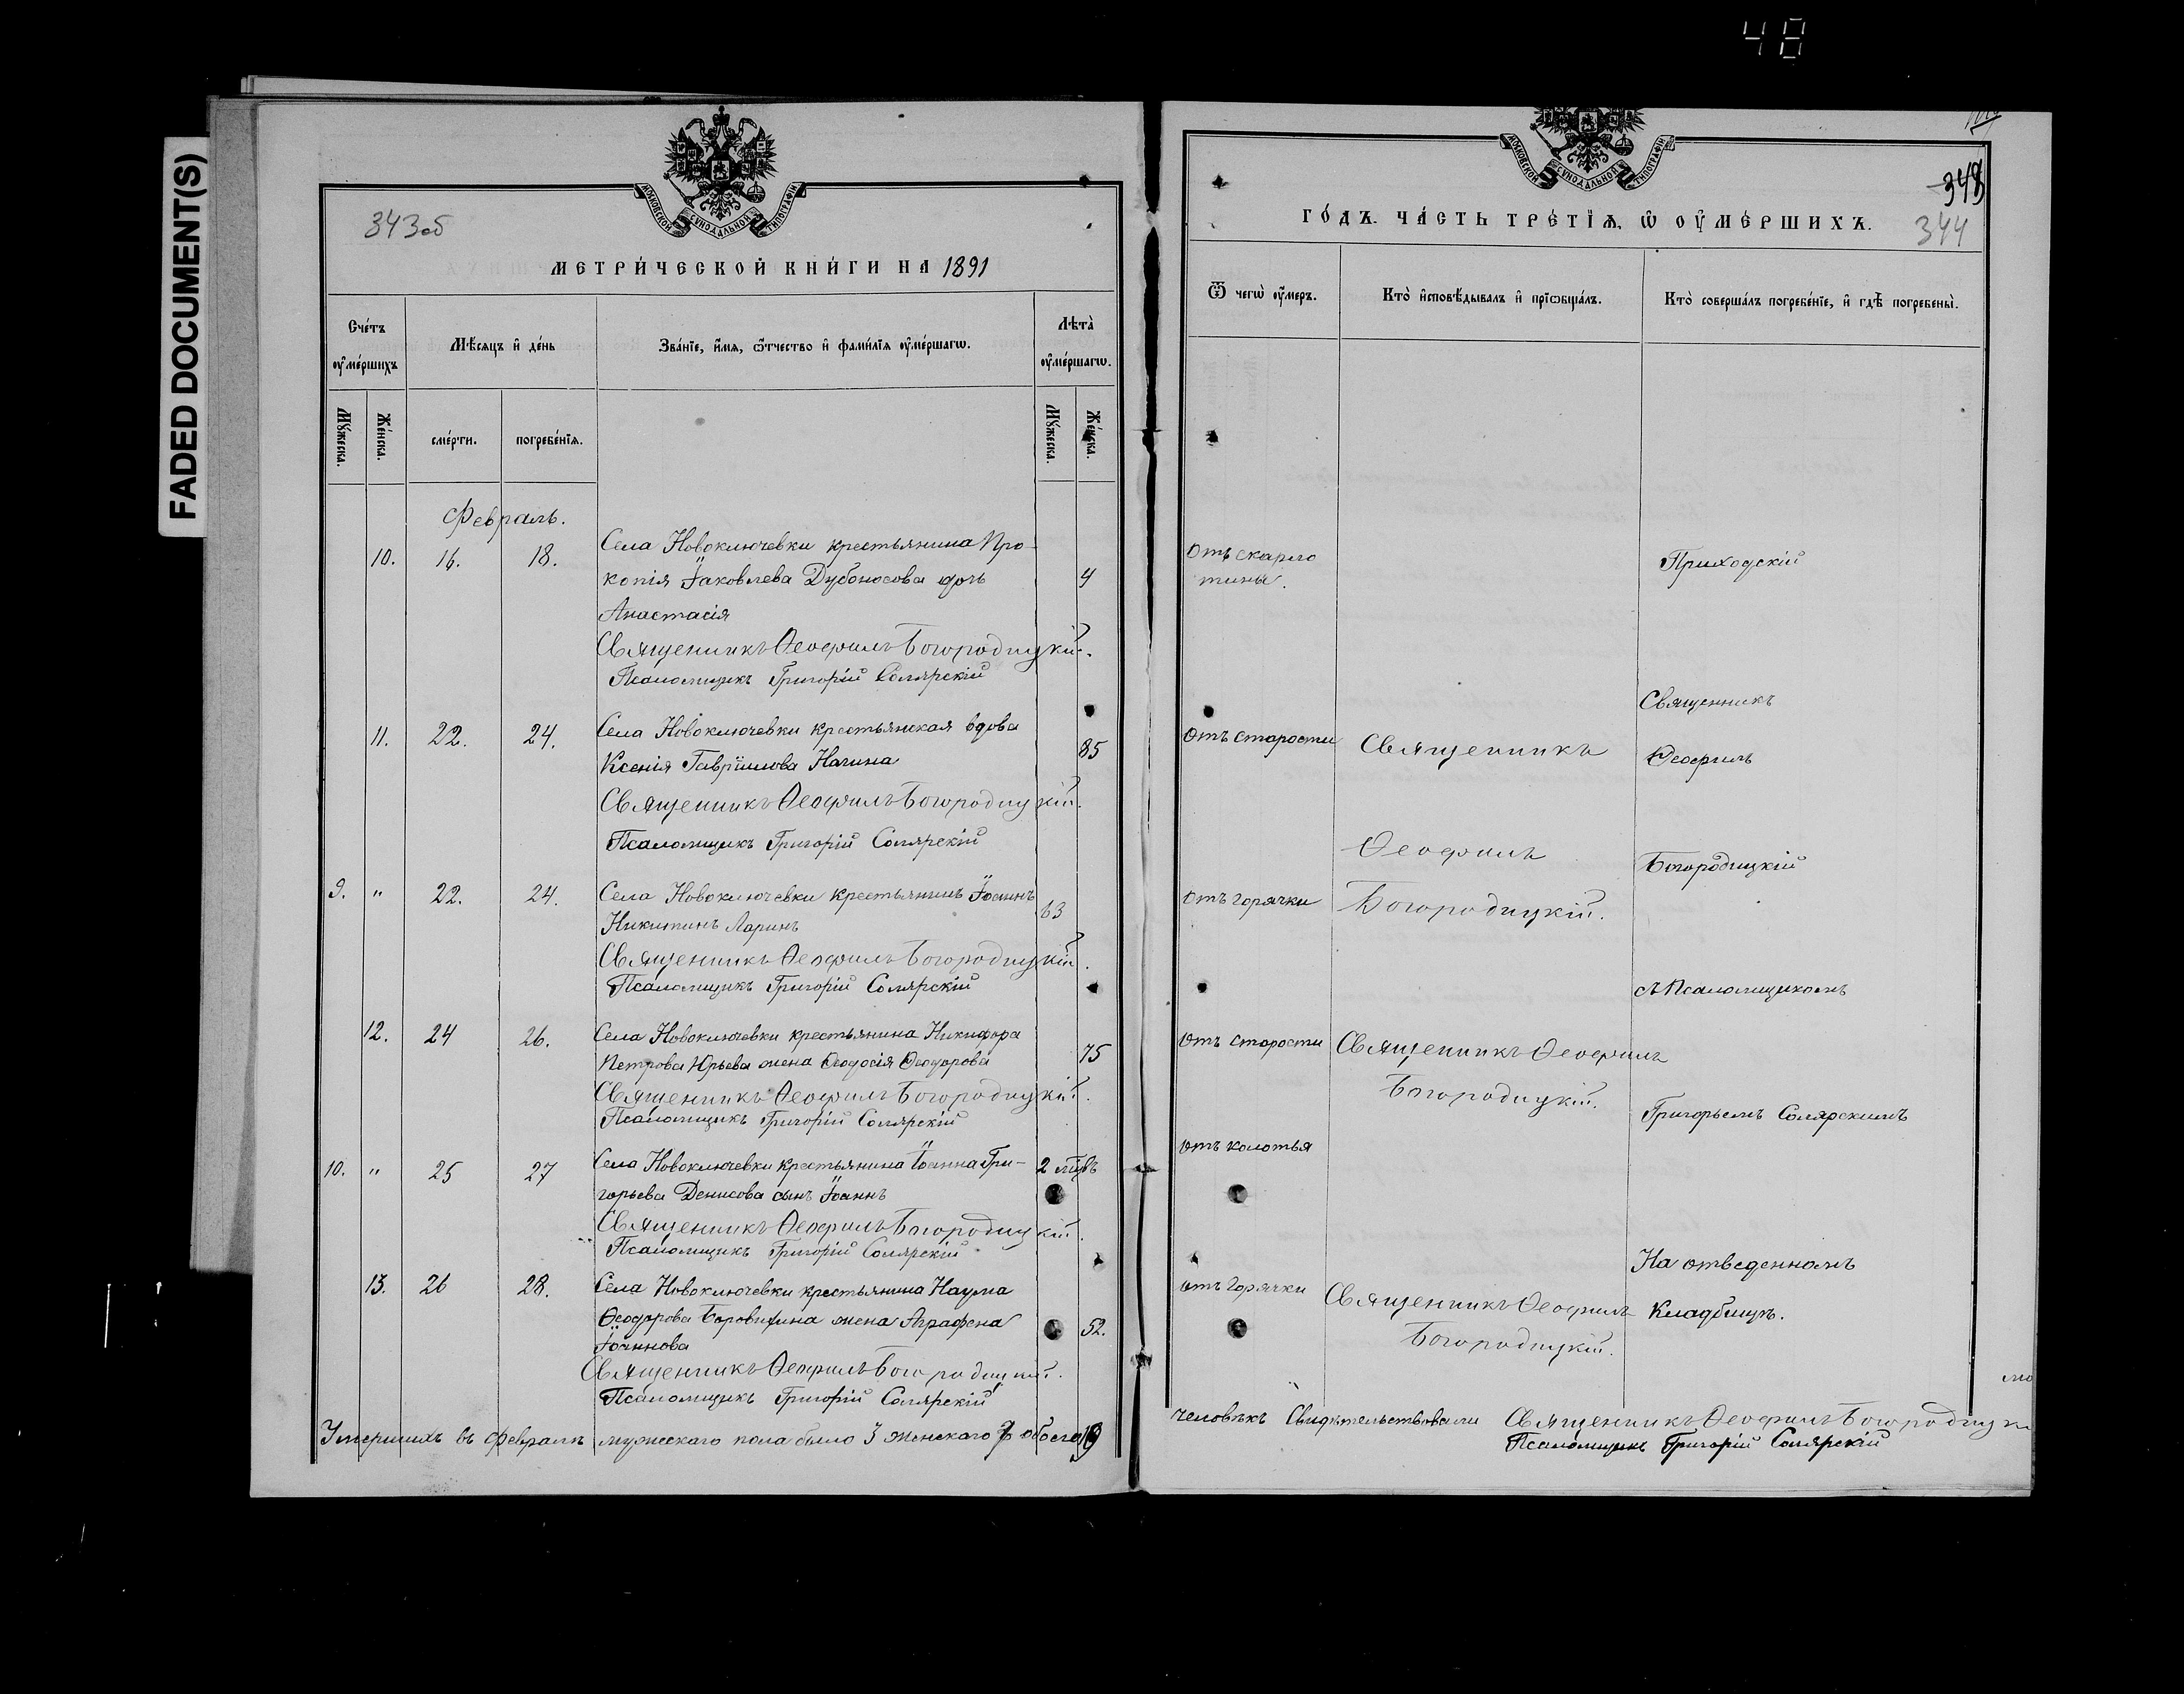 48
FADED DOCUMENT(S)
МОСКОВСКОЙ СѴНОДАЛЬНОЙ ТИПОГРАФІИ
343об
МЕТРИ́ЧЕСКОЙ КНИ́ГИ НА 1891
Сче́тъ ᲂу҆ме́ршихъ
Мѣ́сяцъ и҆ де́нь
Зва́нїе, и҆́мя, ѻ҆́тчество и҆ фами́лїя ᲂу҆ме́ршагѡ.
Лѣта̀ ᲂу҆ме́ршагѡ.
Мꙋ́жеска.
Же́нска.
сме́рти.
погребе́нїя.
Мꙋ́жеска.
Же́нска.
Февраль.
10. 16. 18. Села Новоключевки крестьянина Про-
копія Іаковлева Дубоносова дочь 4
Анастасія
Священникъ Ѳеофилъ Богородицкій.
Псаломщикъ Григорій Солярскій
11. 22. 24. Села Новоключевки крестьянская вдова
Ксенія Гавріилова Начина 85
Священникъ Ѳеофилъ Богородицкій.
Псаломщикъ Григорій Солярскій
9. " 22. 24. Села Новоключевки крестьянинъ Іоаннъ
Никитинъ Ларинъ 63
Священникъ Ѳеофилъ Богородицкій.
Псаломщикъ Григорій Солярскій
12. 24 26. Села Новоключевки крестьянина Никифора
Петрова Юрьева жена Ѳеодосія Ѳеодорова 75
Священникъ Ѳеофилъ Богородицкій.
Псаломщикъ Григорій Солярскій
10. " 25 27 Села Новоключевки крестьянина Іоанна Гри- 2
горьева Денисова сынъ Іоаннъ
Священникъ Ѳеофилъ Богородицкій.
Псаломщикъ Григорій Солярскій
13. 26 28. Села Новоключевки крестьянина Наума
Ѳеодорова жена Аграфена 52.
Іоаннова
Священникъ Ѳеофилъ Богородицкій.
Псаломщикъ Григорій Солярскій
Умершихъ въ Февралѣ мужескаго пола было 3 женскаго обоего
МОСКОВСКОЙ СѴНОДАЛЬНОЙ ТИПОГРАФІИ
348
344
ГО́ДЪ. ЧА́СТЬ ТРЕ́ТЇѦ, Ѡ҆ ОУ҆МЕ́РШИХЪ.
Ѿ чегѡ̀ ᲂу҆́меръ.
Кто̀ и҆сповѣ́дывалъ и҆ прїѡбща́лъ.
Кто̀ соверша́лъ погребе́нїе, и҆ гдѣ̀ погребены̀.
Отъ скарла
тины.
Приходскій
Священникъ
Отъ старости Священникъ Ѳеофилъ
Ѳеофилъ Богородицкій
Отъ горячки Богородицкій.
съ Псаломщикомъ
Отъ старости Священникъ Ѳеофилъ
Богородицкій. Григорьемъ Солярскимъ
Отъ колотья
На отведенномъ
Отъ горячки Священникъ Ѳеофилъ Кладбищѣ.
Богородицкій.
человѣкъ Свидѣтельствовали Священникъ Ѳеофилъ
Псаломщикъ Григорій Солярскій